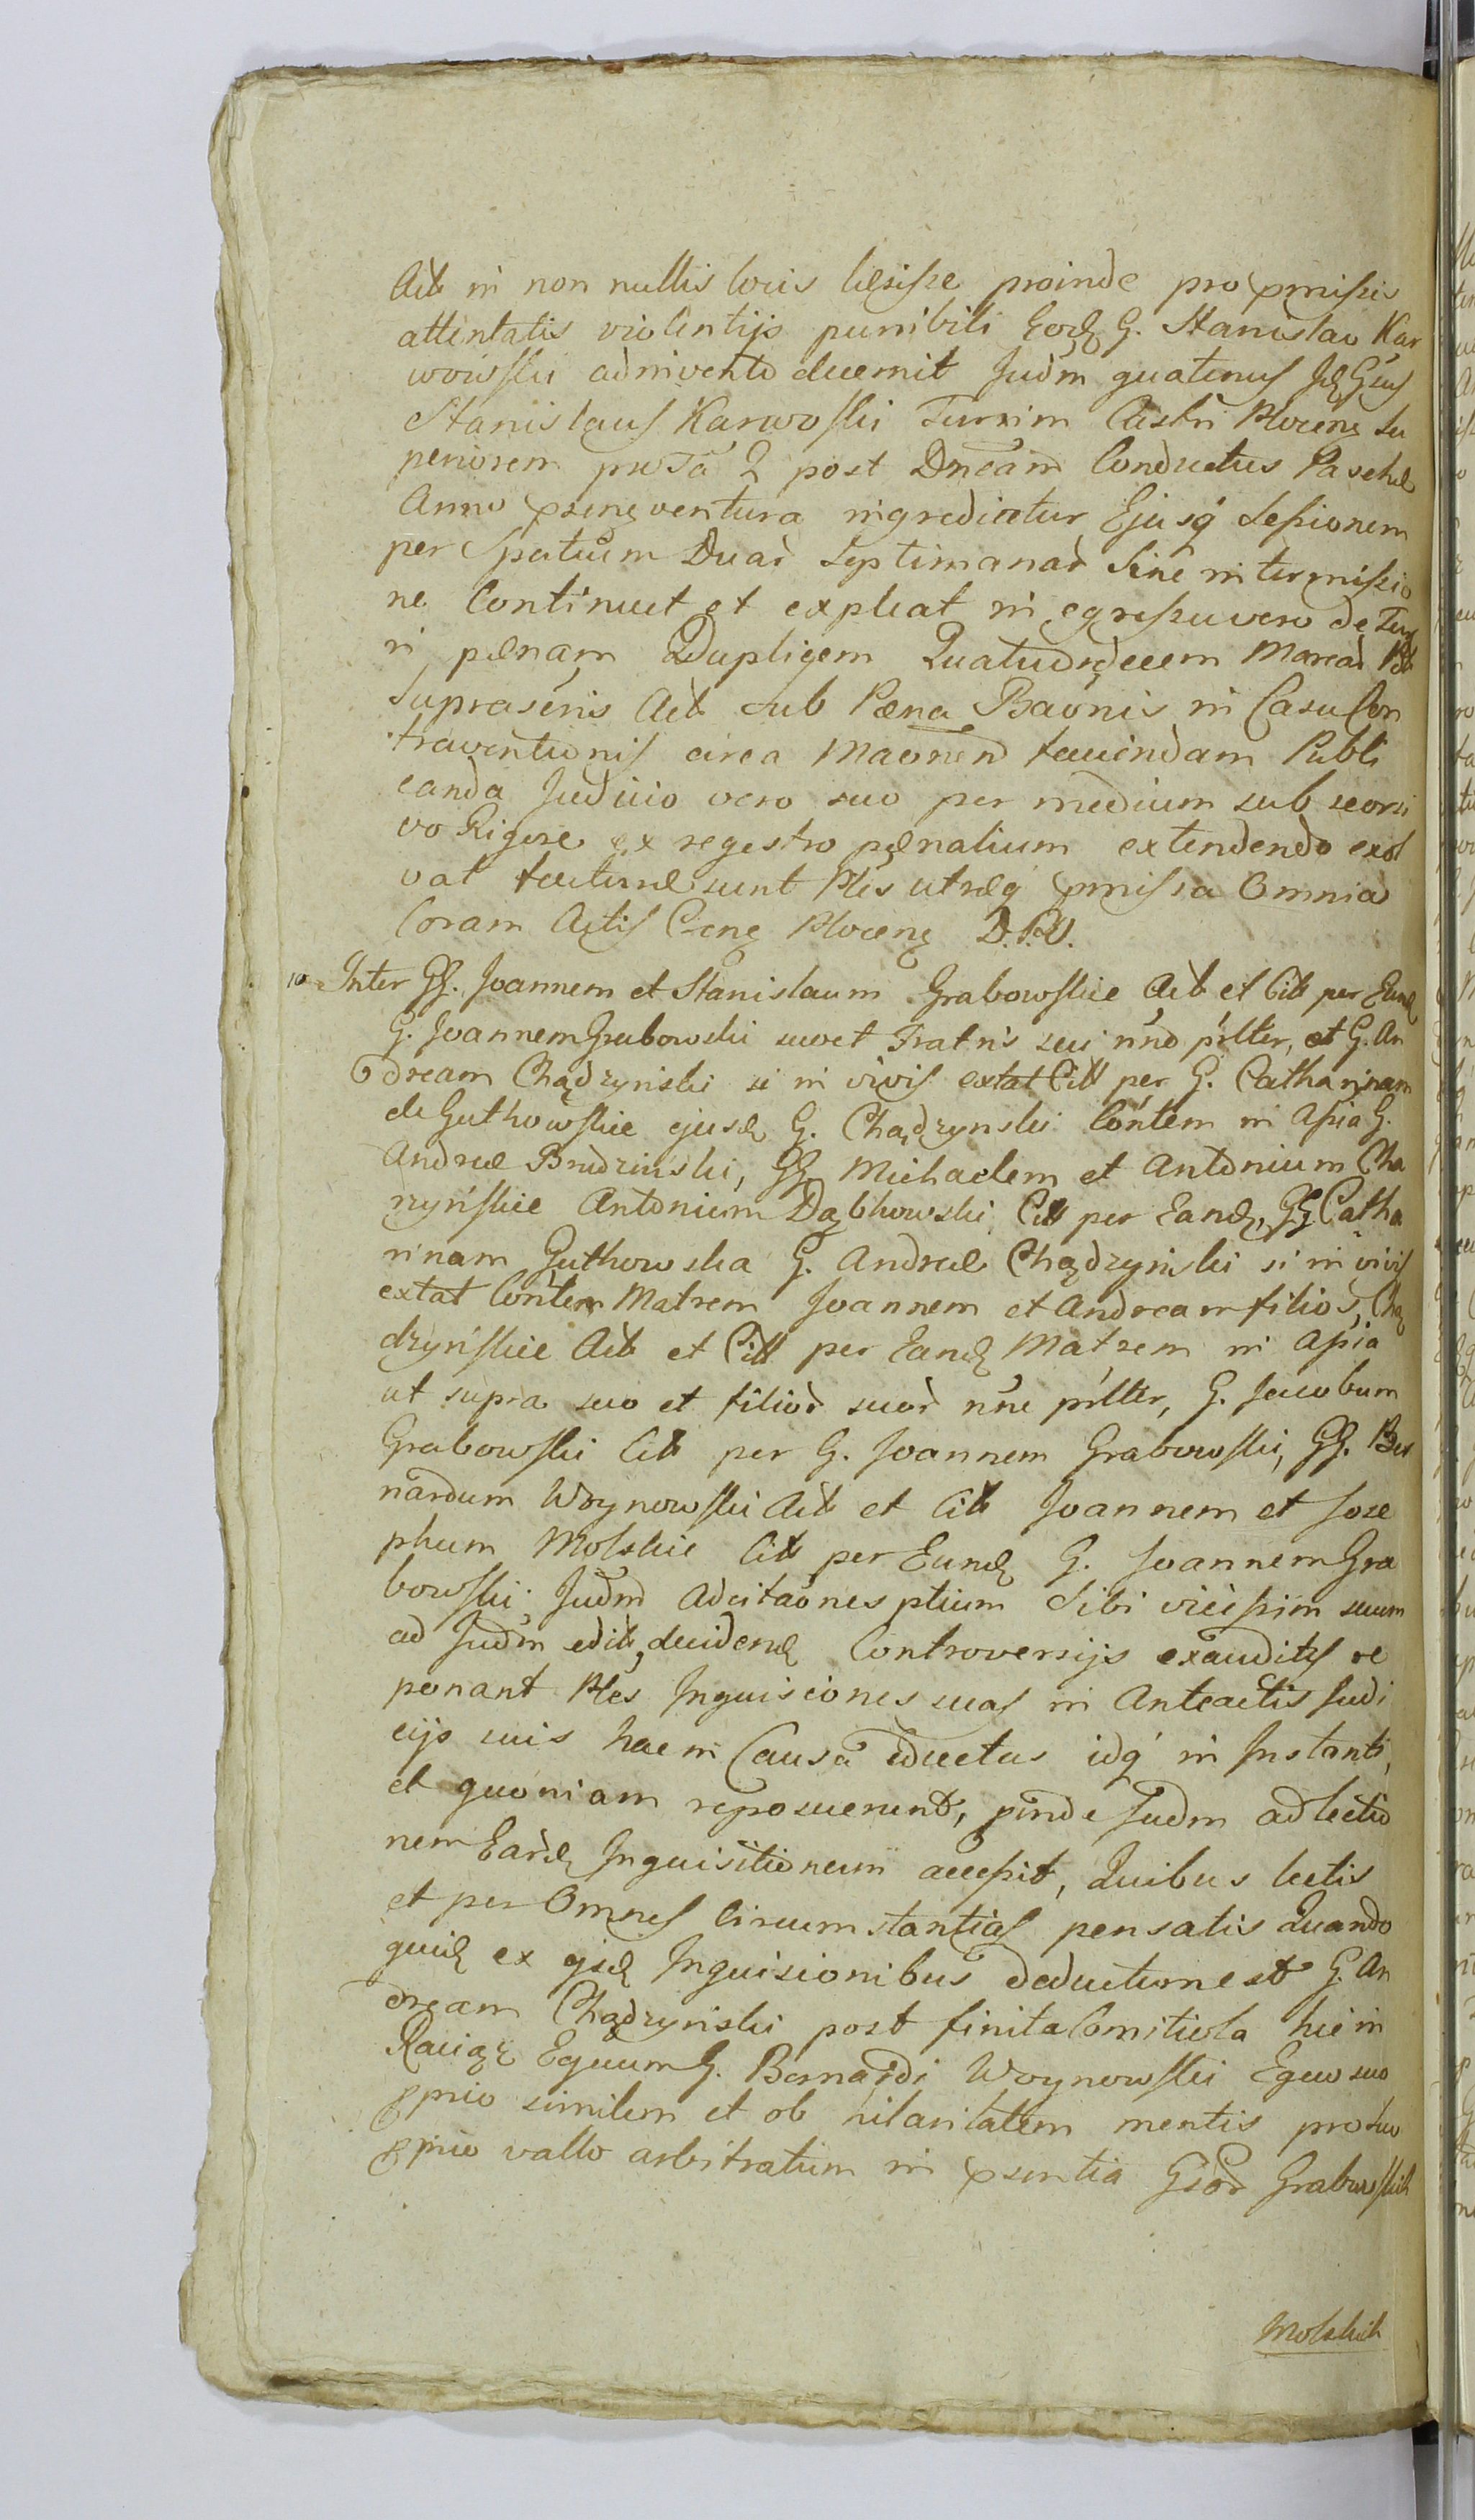 Actt in non nullis locis læsisse proinde pro pmissis
attentatis violentijs punibili Eodq G. Stanislao Kar
wowskii adinvento decernit Judm quatenus Jdq Gsus
Stanislaus Karwoskii Turrim Castri Plocenq Su
periorem pro Ta 2 post Dncam Conductus Paschæ
Anno psenq ventura ingrediatur Ejusq Sessionem
per Spatium Duar Septimanar Sine intermissio
ne Continuet et expleat in egressu vero de Tur
ri pænam Duplicem Quatuordecem Marcar Ptt
Suprascris Actt Sub Pæna Baonis in Casu Con
traventionis circa Maonem taciendam Publi
canda Judicio vero suo per medium sub seorsi
vo Rigore ex regestro pænalium extendendo exol
vat facturæ sunt Ptes utræq pmissa Omnia
Coram Actis Csenq Plocenq D. P. V.
10 Inter GG. Joannem et Stanislaum Grabowskie Actt et Citt per Eund
G. Joannem Grabowski suo et Fratris sui nno prltter, et G. An
dream Chądzynski si in vivis extat Citt per G. Catharinam
de Guthowskie ejusd G. Chądzynski Contem in Assia G.
Andreæ Brudzinski, GG. Michaelem et Antonium Cha
rzynskie Antonium Dąbkowski Citt per Eand, GG. Catha
rinam Guthowska G. Andreæ Chądzynski si in vivis
extat Contem Matrem Joannem et Andream filios, Chą
dzynskie Actt et Citt per Eand Matrem in Assia
ut supra suo et filior suor nne prltter, G. Jacobum
Grabowski Citt per G. Joannem Grabowski, GG. Ber
nardum Woynowski Actt et Citt Joannem et Jose
phum Molskie Citt per Eund G. Joannem Gra
bowski Judm Adcitaones ptium Sibi vicissim suum
ad Judm edit, decidend Controversijs exauditis re
ponant Ptes Inquisiones suas in Anteactis Judi
cijs suis hac in Causa eductas idq in Instanti,
et quoniam reposuerunt, pinde Judm ad lectio
nem Eard Inquisitionum accessit, Quibus lectis
et per Omnes Circumstantias pensatis Quando
quid ex ijsd Inquisionibus deductum est G. An
dream Chądzynski post finita Comitiola hic in
Raciąz Equum G. Bernardi Woynowski Equo suo
pprio similem et ob hilaritatem mentis pro suo
pprio vallo arbitratum in psentia Gsor Grabowskich
Molskich